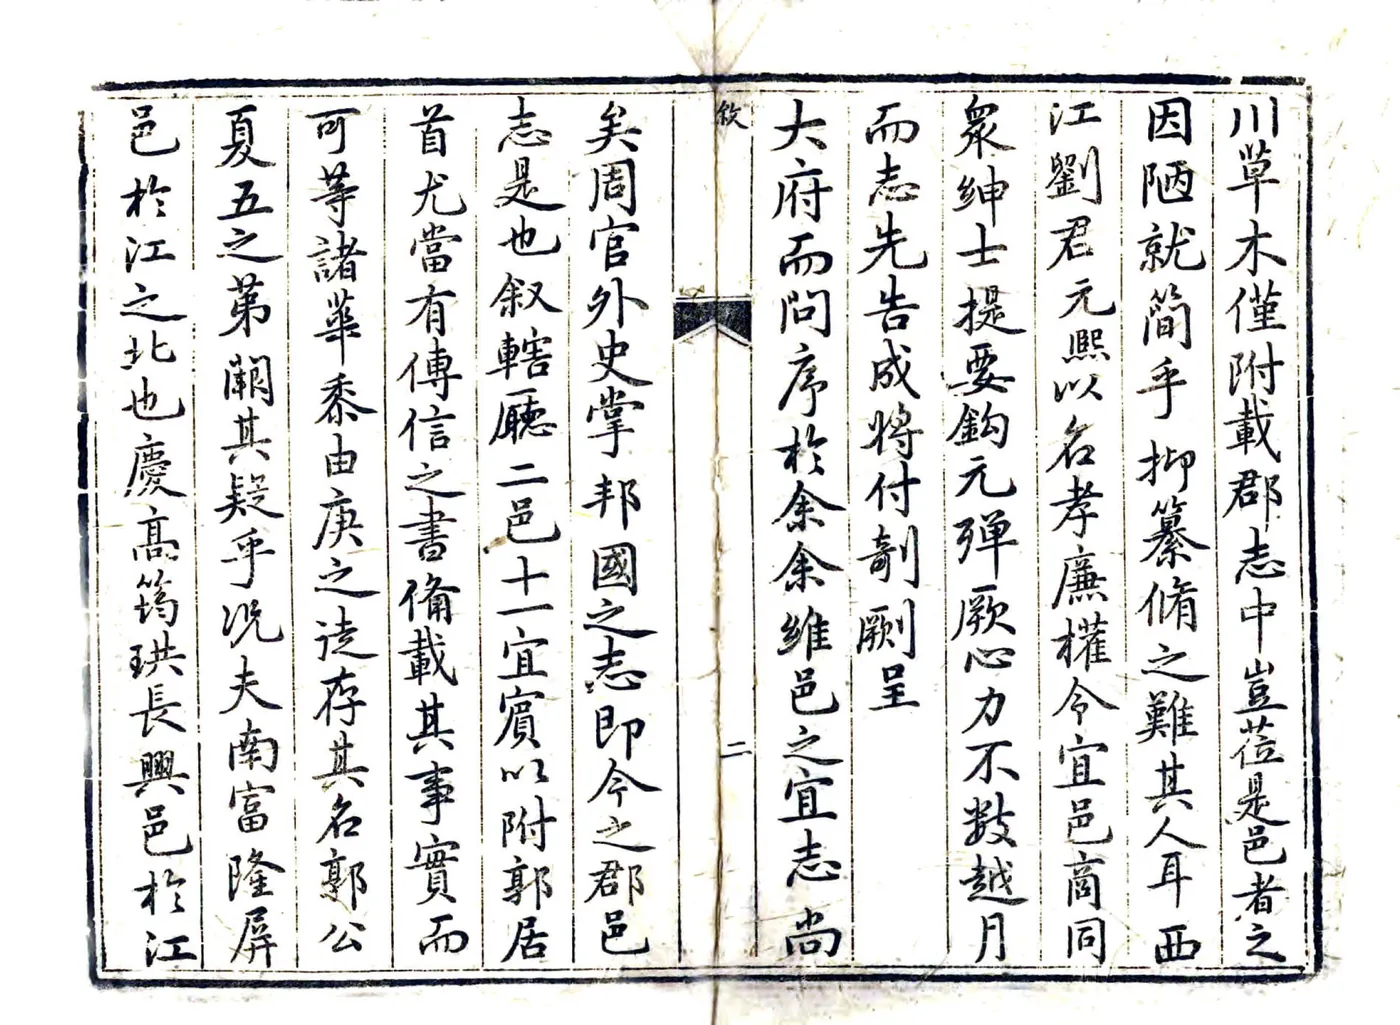 川草木僅附載郡志中豈莅是邑者之
因陋就簡乎抑纂脩之難其人耳西
江劉君元熙以名孝廉權令宜邑商同
衆紳士提要鈎元殫厥心力不數越月
而志先告成將付剞劂呈
大府而問序於余余維邑之宜志尚
敘
二
矣周官外史掌邦國之志即今之郡邑
志是也叙轄廳二邑十一宜賓以附郭居
首尤當有傳信之書備載其事實而
可等諸華黍由庚之徒存其名郭公
夏五之第闕其疑乎况夫南富隆屏
邑於江之北也慶高筠珙長興邑於江